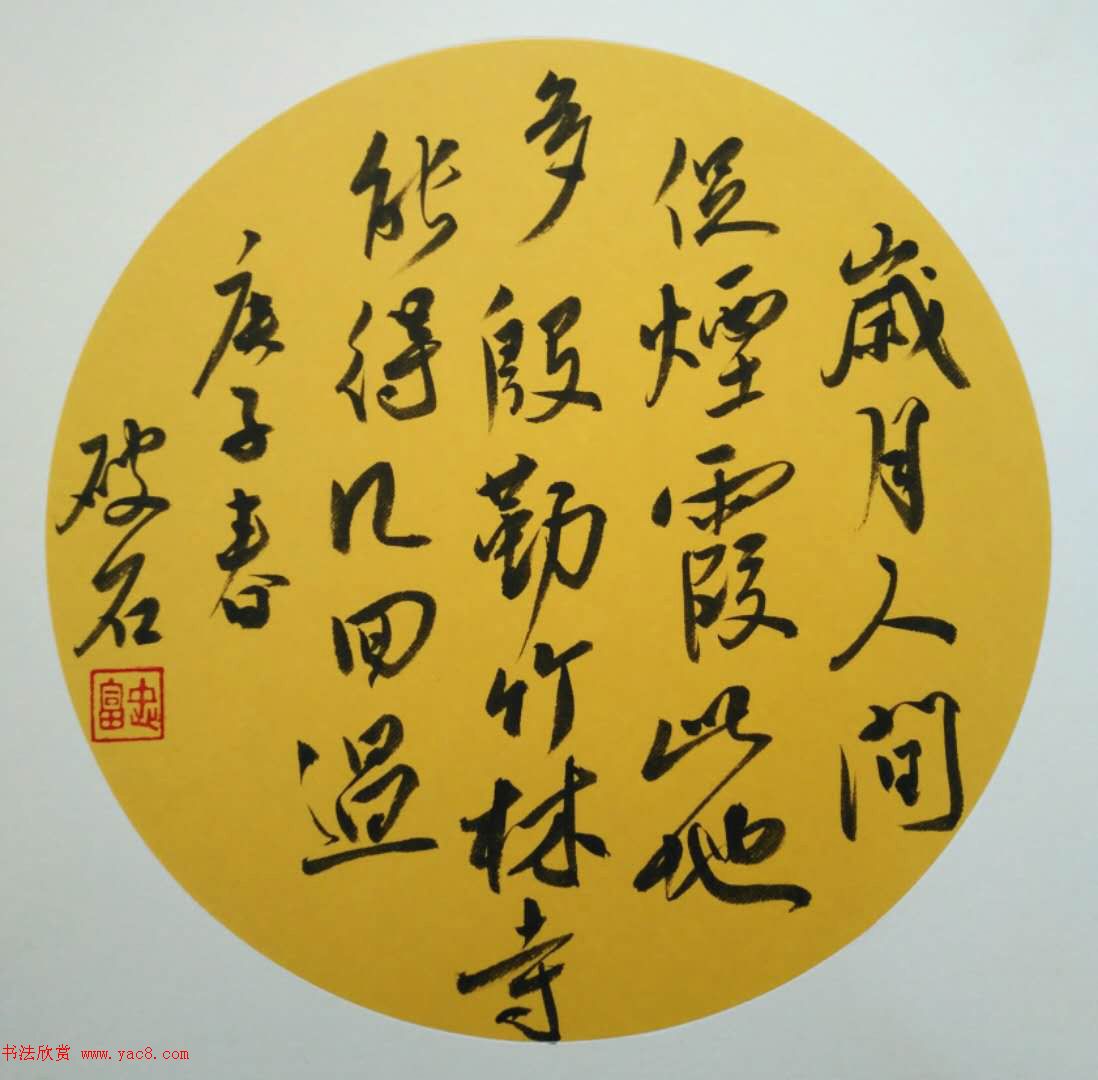 歲月人間
促煙霞此地
多殷勤竹林寺
能得几回過
庚子春
破石
忠富
书法欣赏 www.yac8.com